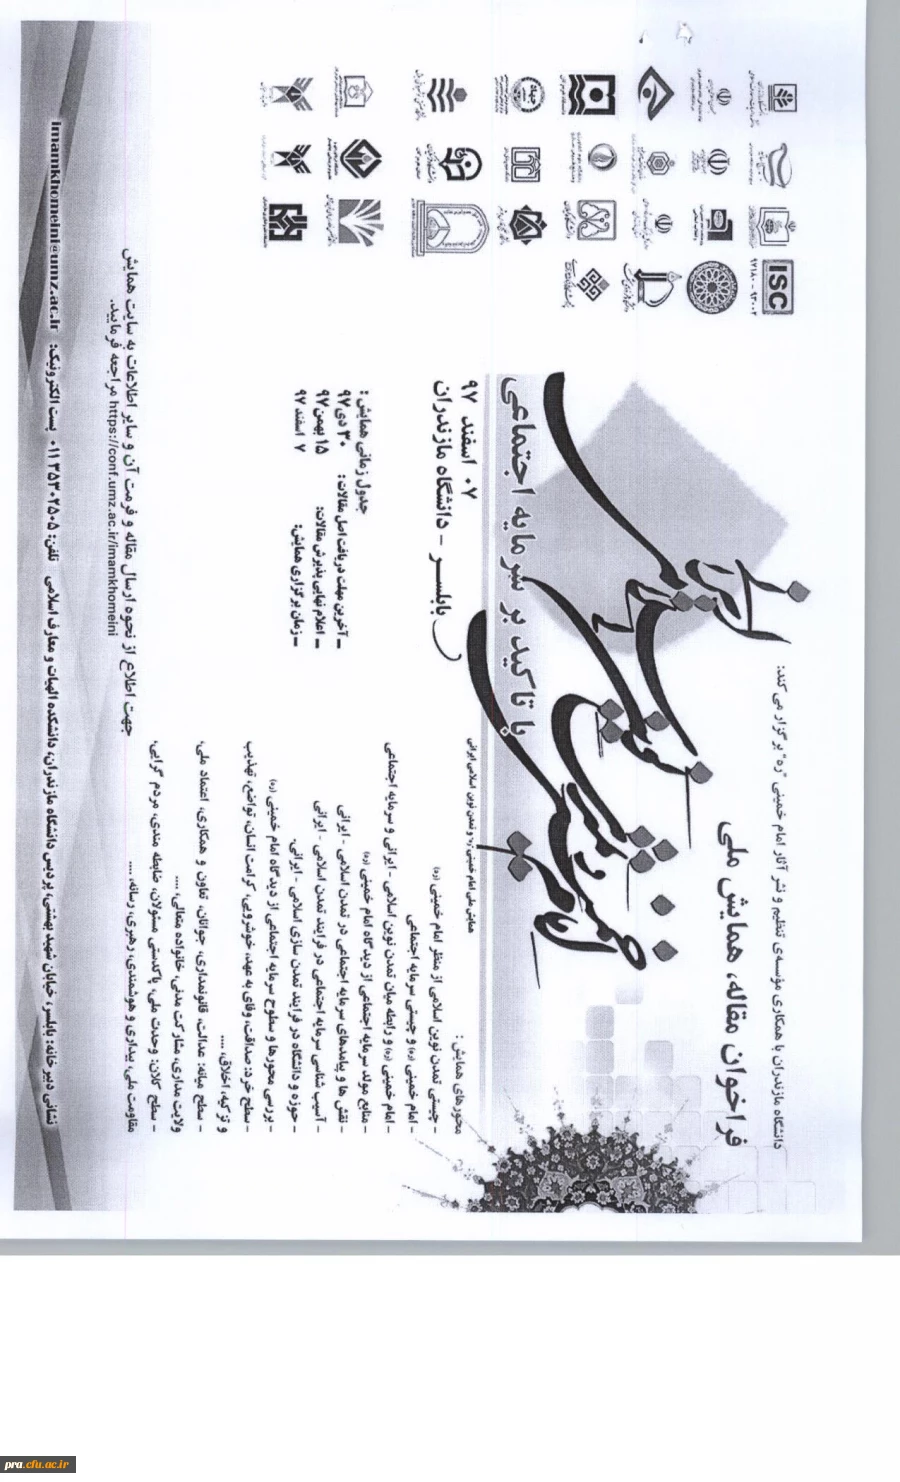 دانشگاه مازندران با همکاری مؤسسه‌ی تنظیم و نشر آثار امام خمینی "ره" برگزار می‌کند:
فراخوان مقاله، همایش ملی
امام خمینی
با تاکید بر سرمایه اجتماعی
همایش ملی امام خمینی "ره" و تمدن نوین اسلامی ایرانی
۰۷ اسفند ۹۷
بابلسر - دانشگاه مازندران
محورهای همایش :
- چیستی تمدن نوین اسلامی از منظر امام خمینی (ره)
- امام خمینی (ره) و چیستی سرمایه اجتماعی
- امام خمینی (ره) و رابطه میان تمدن نوین اسلامی - ایرانی و سرمایه اجتماعی
- منابع مولد سرمایه اجتماعی از دیدگاه امام خمینی (ره)
- نقش ها و پیامدهای سرمایه اجتماعی در تمدن اسلامی - ایرانی
- آسیب شناسی سرمایه اجتماعی در فرایند تمدن اسلامی - ایرانی
- حوزه و دانشگاه در فرایند تمدن سازی اسلامی - ایرانی.
- بررسی محورها و سطوح سرمایه اجتماعی از دیدگاه امام خمینی (ره)
- سطح خرد: صداقت، وفای به عهد، خوشرویی، کرامت انسان، تواضع، تهذیب
و تزکیه، اخلاق، ....
- سطح میانه: عدالت، قانونمداری، جوانان، تعاون و همکاری، اعتماد ملی،
ولایت مداری، مشارکت مدنی، خانواده متعالی، ....
- سطح کلان: وحدت ملی، پاکدستی مسئولان، ضابطه مندی، مردم گرایی،
مقاومت ملی، بیداری و هوشمندی، رهبری، رسانه، ....
جدول زمانی همایش :
- آخرین مهلت دریافت اصل مقالات: ۳۰ دی ۹۷
- اعلام نهایی پذیرش مقالات: ۱۵ بهمن ۹۷
- زمان برگزاری همایش: ۷ اسفند ۹۷
ISC
۹۷۱۸۰ - ۹۳۰۰۲
جهت اطلاع از نحوه ارسال مقاله و فرمت آن و سایر اطلاعات به سایت همایش
https://conf.umz.ac.ir/imamkhomeini مراجعه فرمایید.
نشانی دبیرخانه: بابلسر، خیابان شهید بهشتی، پردیس دانشگاه مازندران، دانشکده الهیات و معارف اسلامی تلفن: ۰۱۱۳۵۳۰۲۵۰۵ پست الکترونیک: imamkhomeini@umz.ac.ir
pra.cfu.ac.ir